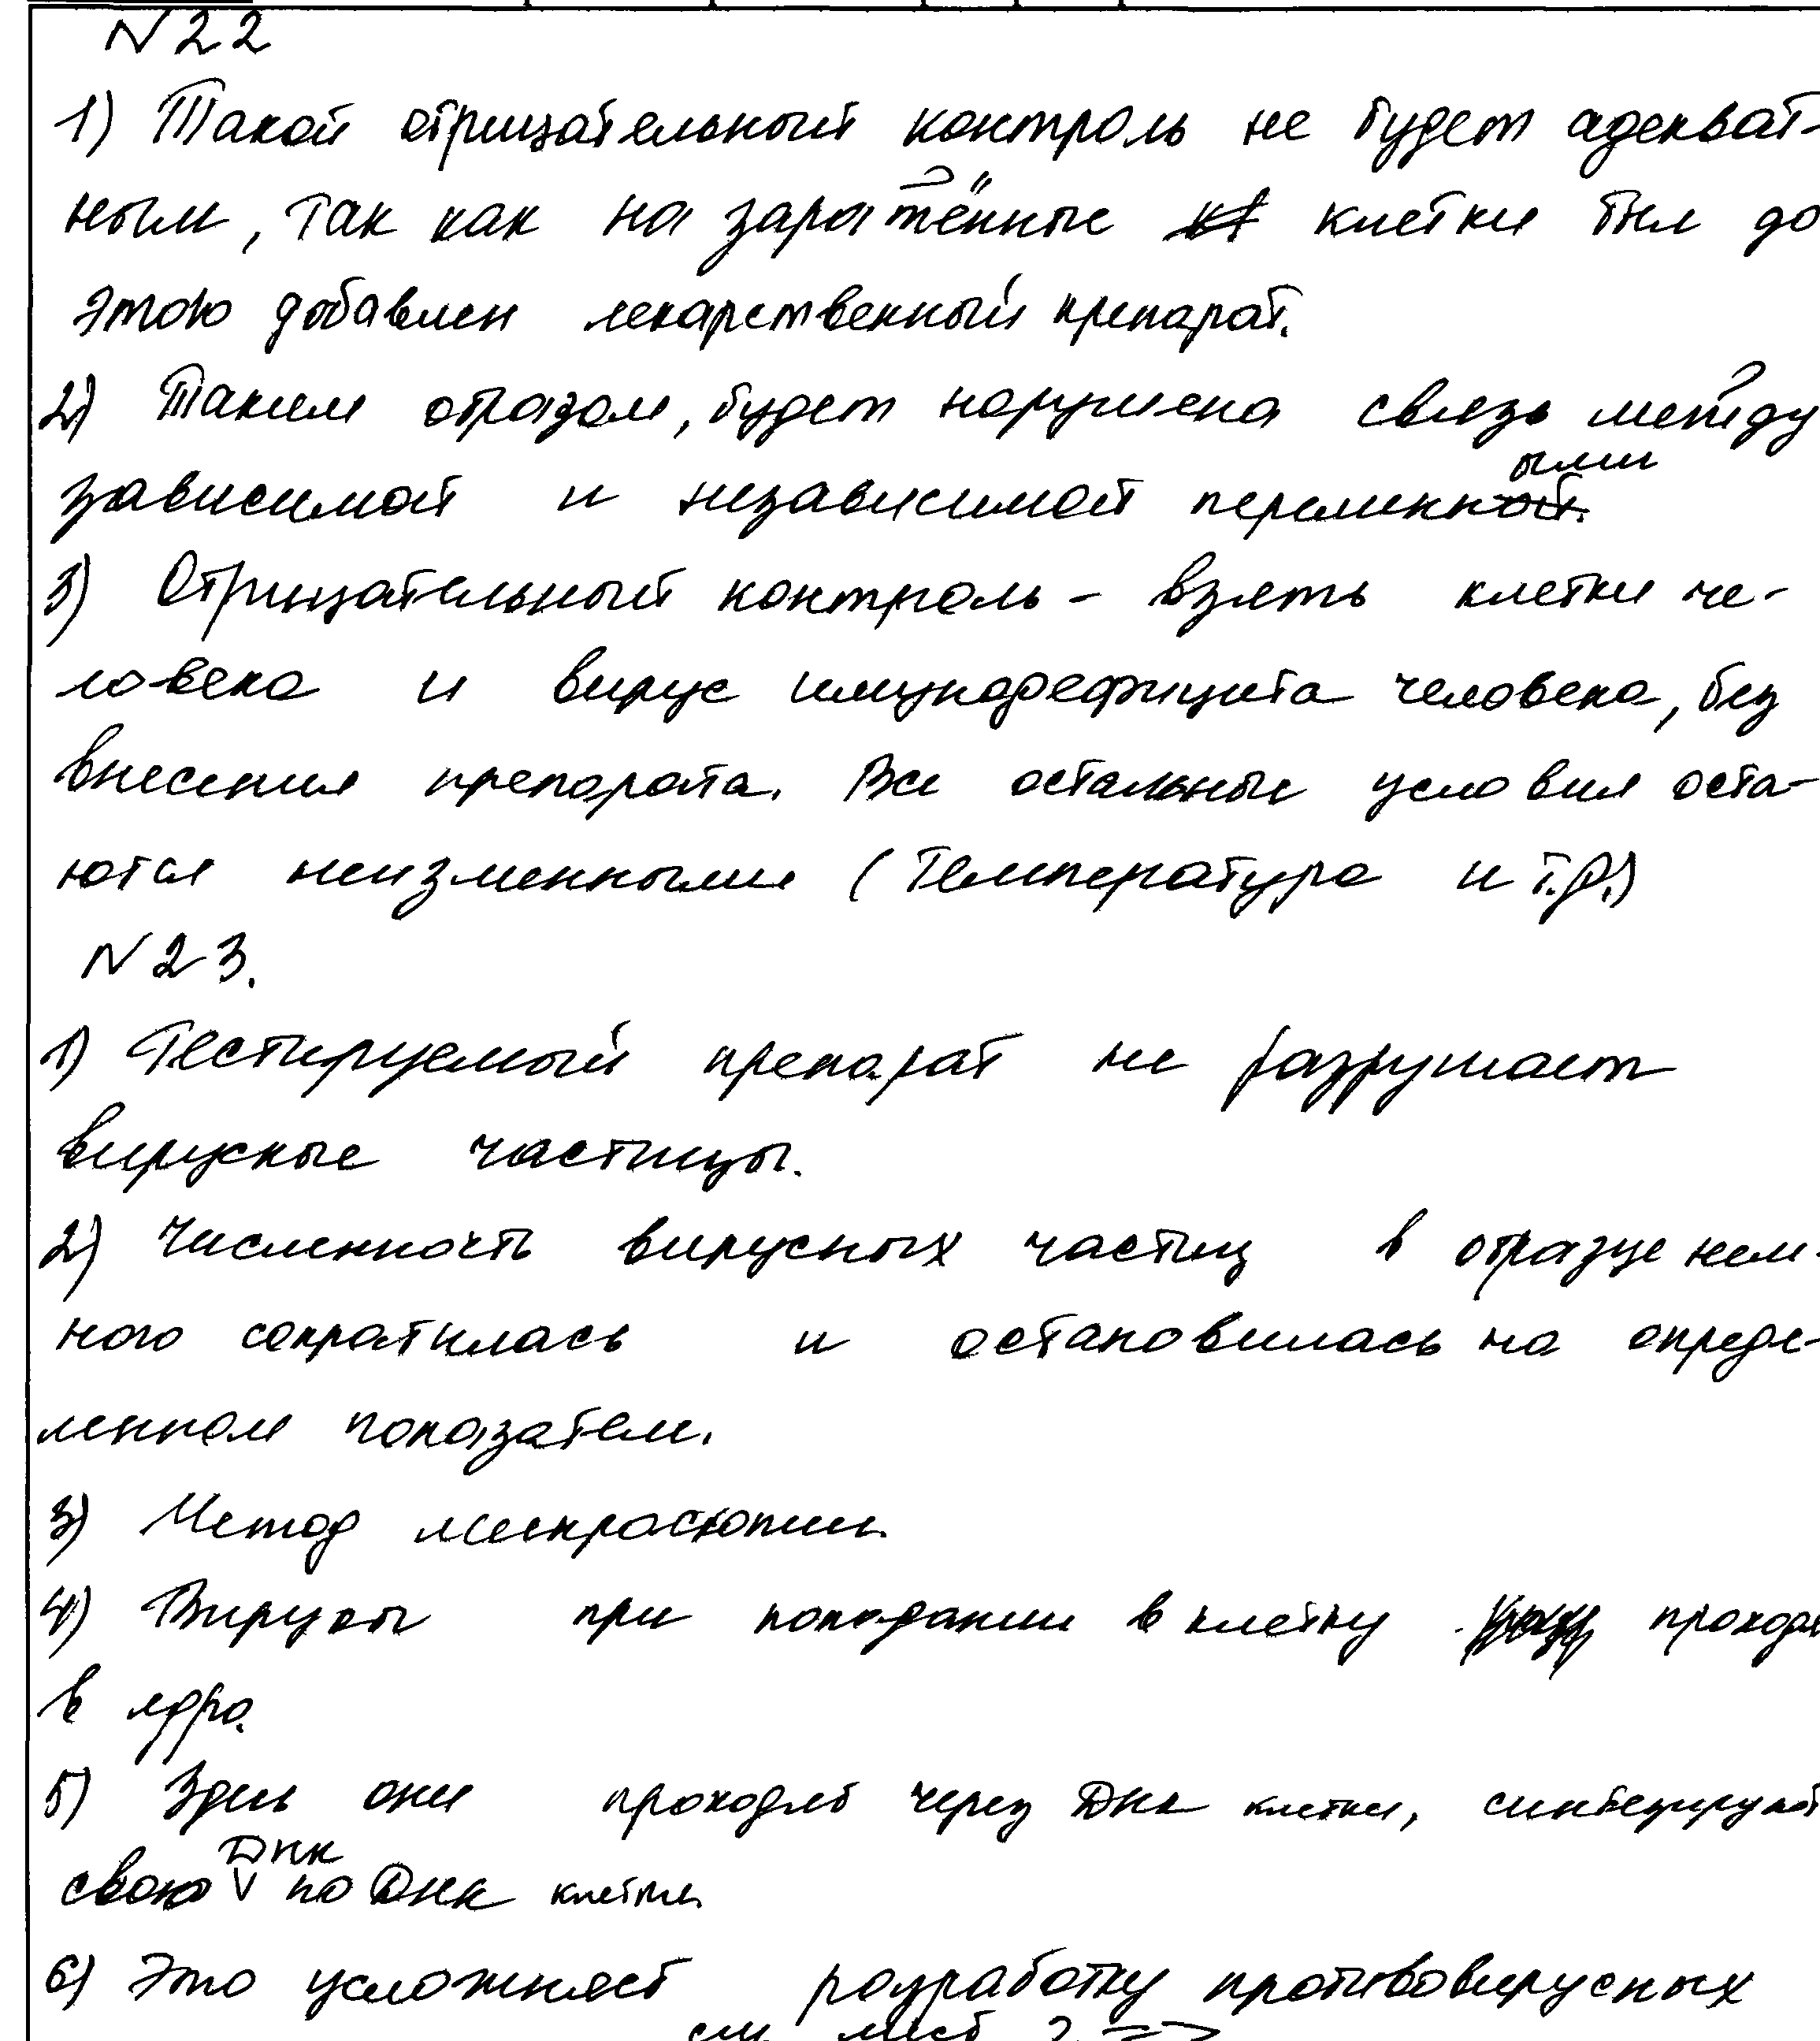 N22
1) Такой отрицательный контроль не будет адекват-
ным, так как на заражённые клетки был до
этого добавлен лекарственный препарат.
2) Таким образом, будет нарушена связь между
зависимой и независимой переменными
3) Отрицательный контроль - взять клетки че-
ловека и вирус имунодефицита человека, без
внесения препарата. Все остальные условия оста-
ются неизменными (температура и т.д.)
N23.
1) Тестируемый препарат не разрушает
вирусные частицы.
2) Численность вирусных частиц в образце нем-
ного сократилась и остановилась на опреде-
ленном показателе.
3) Метод микроскопии.
4) Вирусы при попадании в клетку проходят
в ядро.
5) Здесь они проходят через ДНК клетки, синтезируют
свою ДНК по ДНК клетки.
6) Это усложняет разработку противовирусных
см. лист 2 =>